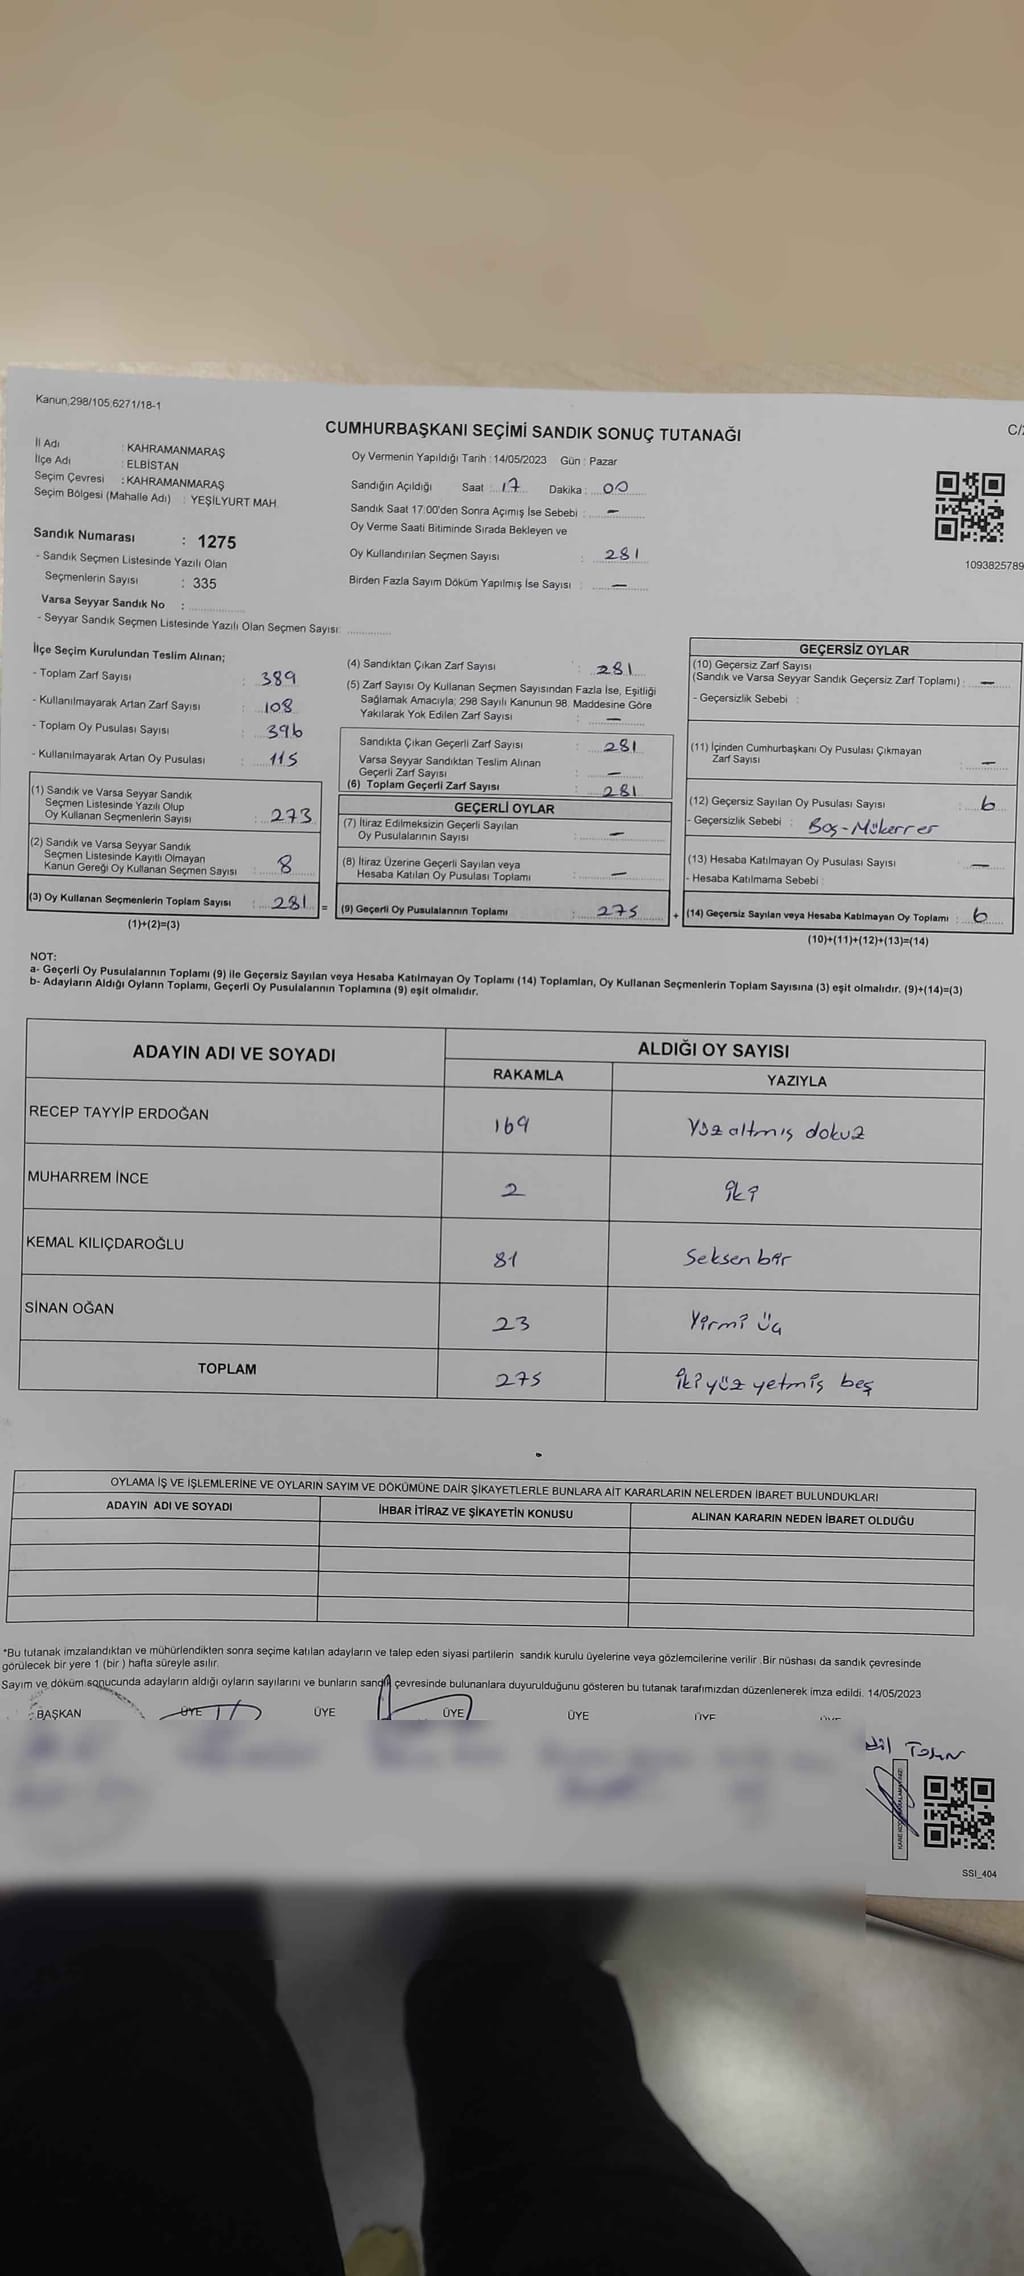 Kanun,298/105,6271/18-1
CUMHURBAŞKANI SEÇİMİ SANDIK SONUÇ TUTANAĞI
İl Adı : KAHRAMANMARAŞ
İlçe Adı : ELBİSTAN
Seçim Çevresi : KAHRAMANMARAŞ
Seçim Bölgesi (Mahalle Adı) : YEŞİLYURT MAH.
Sandık Numarası : 1275
- Sandık Seçmen Listesinde Yazılı Olan
Seçmenlerin Sayısı : 335
Varsa Seyyar Sandık No :
- Seyyar Sandık Seçmen Listesinde Yazılı Olan Seçmen Sayısı:
Oy Vermenin Yapıldığı Tarih : 14/05/2023 Gün : Pazar
Sandığın Açıldığı Saat : 17 Dakika : 00
Sandık Saat 17:00'den Sonra Açımış İse Sebebi : —
Oy Verme Saati Bitiminde Sırada Bekleyen ve
Oy Kullandırılan Seçmen Sayısı : 281
Birden Fazla Sayım Döküm Yapılmış İse Sayısı : —
1093825789
İlçe Seçim Kurulundan Teslim Alınan;
- Toplam Zarf Sayısı : 389
- Kullanılmayarak Artan Zarf Sayısı : 108
- Toplam Oy Pusulası Sayısı : 396
- Kullanılmayarak Artan Oy Pusulası : 115
(1) Sandık ve Varsa Seyyar Sandık
Seçmen Listesinde Yazılı Olup
Oy Kullanan Seçmenlerin Sayısı : 273
(2) Sandık ve Varsa Seyyar Sandık
Seçmen Listesinde Kayıtlı Olmayan
Kanun Gereği Oy Kullanan Seçmen Sayısı : 8
(3) Oy Kullanan Seçmenlerin Toplam Sayısı : 281 =
(1)+(2)=(3)
(4) Sandıktan Çıkan Zarf Sayısı : 281
(5) Zarf Sayısı Oy Kullanan Seçmen Sayısından Fazla İse, Eşitliği
Sağlamak Amacıyla; 298 Sayılı Kanunun 98. Maddesine Göre
Yakılarak Yok Edilen Zarf Sayısı : —
Sandıkta Çıkan Geçerli Zarf Sayısı : 281
Varsa Seyyar Sandıktan Teslim Alınan
Geçerli Zarf Sayısı : —
(6) Toplam Geçerli Zarf Sayısı : 281
GEÇERLİ OYLAR
(7) İtiraz Edilmeksizin Geçerli Sayılan
Oy Pusulalarının Sayısı : —
(8) İtiraz Üzerine Geçerli Sayılan veya
Hesaba Katılan Oy Pusulası Toplamı : —
(9) Geçerli Oy Pusulalarının Toplamı : 275 +
GEÇERSİZ OYLAR
(10) Geçersiz Zarf Sayısı
(Sandık ve Varsa Seyyar Sandık Geçersiz Zarf Toplamı) : —
- Geçersizlik Sebebi :
(11) İçinden Cumhurbaşkanı Oy Pusulası Çıkmayan
Zarf Sayısı : —
(12) Geçersiz Sayılan Oy Pusulası Sayısı : 6
- Geçersizlik Sebebi : Boş-Mükerrer
(13) Hesaba Katılmayan Oy Pusulası Sayısı : —
- Hesaba Katılmama Sebebi
(14) Geçersiz Sayılan veya Hesaba Katılmayan Oy Toplamı : 6
(10)+(11)+(12)+(13)=(14)
NOT:
a- Geçerli Oy Pusulalarının Toplamı (9) ile Geçersiz Sayılan veya Hesaba Katılmayan Oy Toplamı (14) Toplamları, Oy Kullanan Seçmenlerin Toplam Sayısına (3) eşit olmalıdır. (9)+(14)=(3)
b- Adayların Aldığı Oyların Toplamı, Geçerli Oy Pusulalarının Toplamına (9) eşit olmalıdır.
ADAYIN ADI VE SOYADI ALDIĞI OY SAYISI
RAKAMLA YAZIYLA
RECEP TAYYİP ERDOĞAN 169 Yüz altmış dokuz
MUHARREM İNCE 2 İki
KEMAL KILIÇDAROĞLU 81 Seksen bir
SİNAN OĞAN 23 Yirmi üç
TOPLAM 275 İki yüz yetmiş beş
OYLAMA İŞ VE İŞLEMLERİNE VE OYLARIN SAYIM VE DÖKÜMÜNE DAİR ŞİKAYETLERLE BUNLARA AİT KARARLARIN NELERDEN İBARET BULUNDUKLARI
ADAYIN ADI VE SOYADI İHBAR İTİRAZ VE ŞİKAYETİN KONUSU ALINAN KARARIN NEDEN İBARET OLDUĞU
*Bu tutanak imzalandıktan ve mühürlendikten sonra seçime katılan adayların ve talep eden siyasi partilerin sandık kurulu üyelerine veya gözlemcilerine verilir .Bir nüshası da sandık çevresinde
görülecek bir yere 1 (bir ) hafta süreyle asılır.
Sayım ve döküm sonucunda adayların aldığı oyların sayılarını ve bunların sandık çevresinde bulunanlara duyurulduğunu gösteren bu tutanak tarafımızdan düzenlenerek imza edildi. 14/05/2023
BAŞKAN ÜYE ÜYE ÜYE ÜYE ÜYE ÜYE
SSI_404